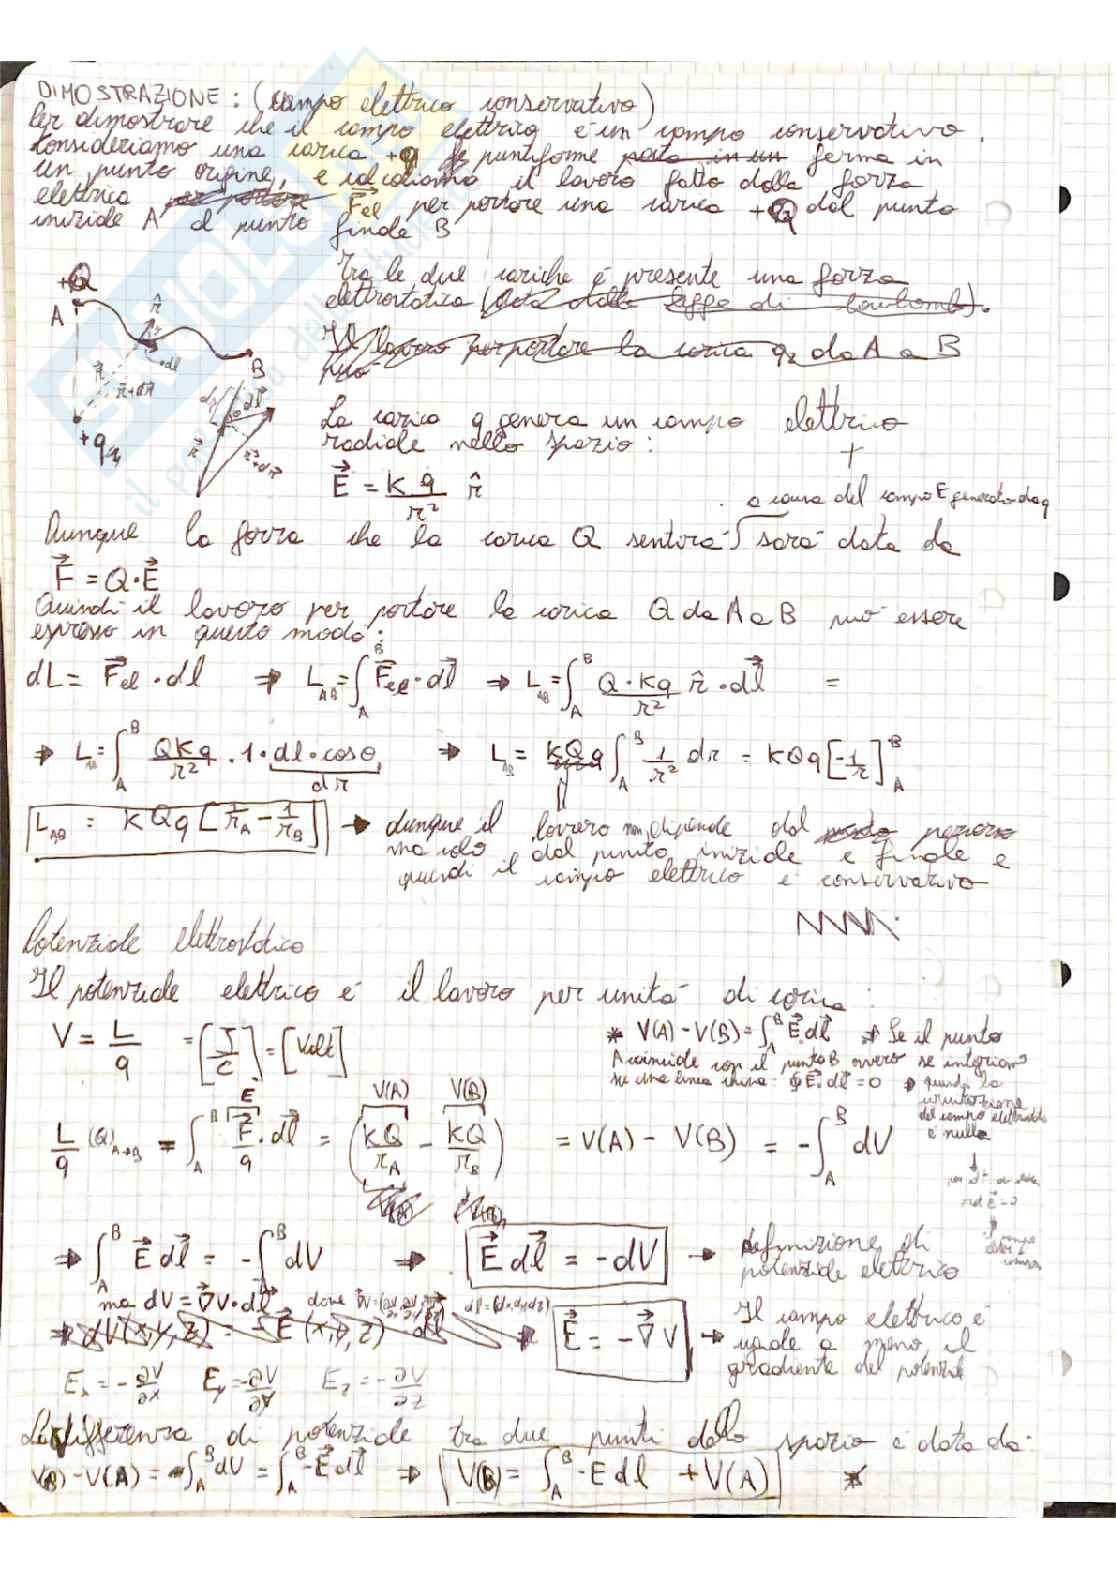 DIMOSTRAZIONE: (campo elettrico conservativo)
Per dimostrare che il campo elettrico è un campo conservativo.
Consideriamo una carica +q puntiforme ferma in
un punto origine, e calcoliamo il lavoro fatto dalla forza
elettrica F⃗el per portare una carica +Q dal punto
iniziale A al punto finale B
Tra le due cariche è presente una forza
elettrostatica (data dalla legge di Coulomb).
Il lavoro per portare la carica q₂ da A a B
può
+Q
A
r̂
dl
B
r⃗
r⃗+dr⃗
+q
dr
θ
dl⃗
r⃗
r⃗+dr⃗
La carica q genera un campo elettrico
radiale nello spazio:
E⃗ = kq/r² r̂
a causa del campo E generato da q
Dunque la forza che la carica Q sentirà sarà data da
F⃗ = Q·E⃗
Quindi il lavoro per portare la carica Q da A a B può essere
espresso in questo modo:
dL = F⃗el · dl ⇒ L_AB = ∫_A^B F⃗el · dl⃗ ⇒ L_AB = ∫_A^B Q·kq/r² r̂ · dl⃗ =
⇒ L_AB = ∫_A^B QKq/r² · 1 · dl · cosθ ⇒ L_AB = kQq ∫_A^B 1/r² dr = kQq [-1/r]_A^B
dr
L_AB = kQq [1/r_A - 1/r_B] → dunque il lavoro non dipende dal percorso
ma solo dal punto iniziale e finale e
quindi il campo elettrico è conservativo
Potenziale elettrostatico
Il potenziale elettrico è il lavoro per unità di carica:
V = L/q = [J/C] = [Volt]
* V(A) - V(B) = ∫_A^B E⃗ · dl⃗ ⇒ Se il punto
A coincide con il punto B ovvero se integriamo
su una linea chiusa: ∮ E⃗ · dl⃗ = 0 ⇒ quindi la
circuitazione
del campo elettrico
è nulla
E⃗
V(A) V(B)
L/q (Q)_A→B = ∫_A^B F⃗/q · dl⃗ = (kQ/r_A - kQ/r_B) = V(A) - V(B) = -∫_A^B dV
⇒ ∫_A^B E⃗ dl⃗ = -∫_A^B dV ⇒ E⃗ dl⃗ = -dV → definizione di
potenziale elettrico
ma dV = ∇⃗V · dl⃗ dove ∇V = (∂V/∂x, ∂V/∂y, ∂V/∂z) dl = (dx, dy, dz)
⇒ dV(x,y,z) = -E⃗ (x,y,z) dl ⇒ E⃗ = -∇⃗V → Il campo elettrico è
uguale a meno il
gradiente del potenziale
Ex = -∂V/∂x Ey = -∂V/∂y Ez = -∂V/∂z
La differenza di potenziale tra due punti dello spazio è data da:
V(B) - V(A) = ∫_A^B dV = ∫_A^B -E⃗ dl⃗ ⇒ V(B) = ∫_A^B -E dl + V(A) *